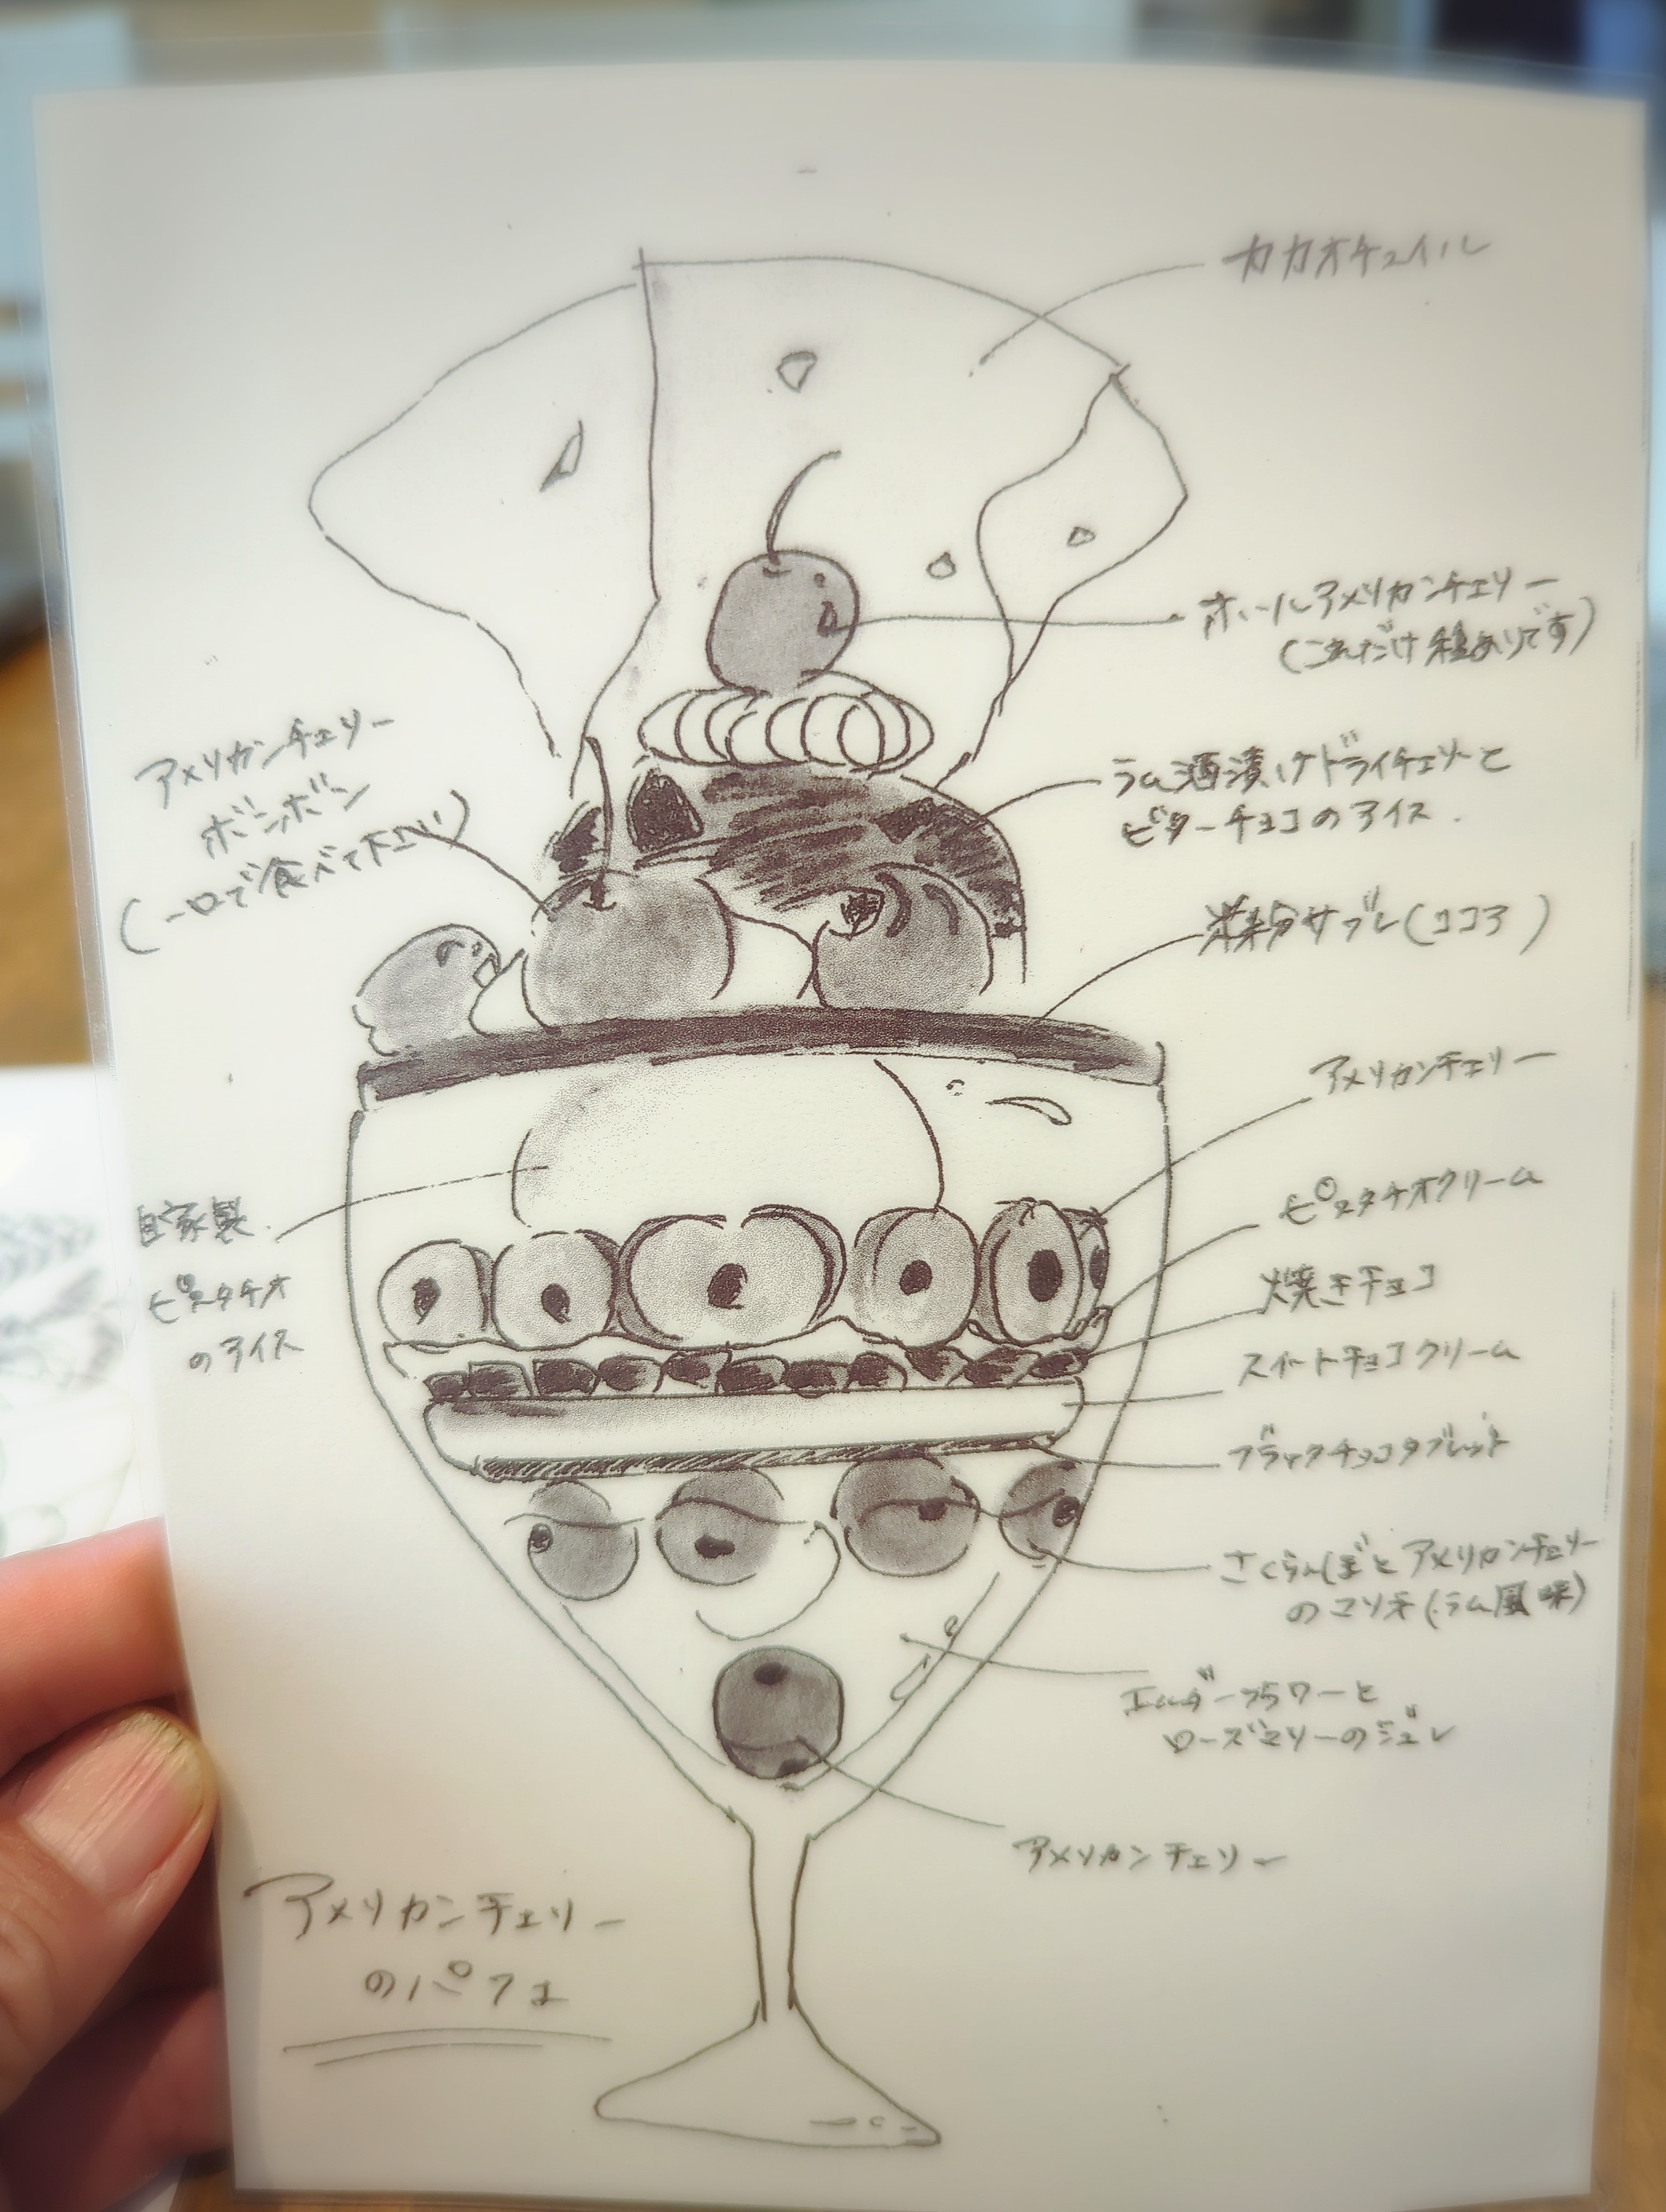 カカオチュイル
ホールアメリカンチェリー
(これだけ種ありです)
アメリカンチェリー
ボンボン
(一口で食べて下さい)
ラム酒漬けドライチェリーと
ビターチョコのアイス.
米粉サブレ(ココア)
アメリカンチェリー
自家製
ピスタチオ
のアイス
ピスタチオクリーム
焼きチョコ
スイートチョコクリーム
ブラックチョコタブレット
さくらんぼとアメリカンチェリー
のマリネ(ラム風味)
エルダーフラワーと
ローズマリーのジュレ
アメリカンチェリー
アメリカンチェリー
のパフェ